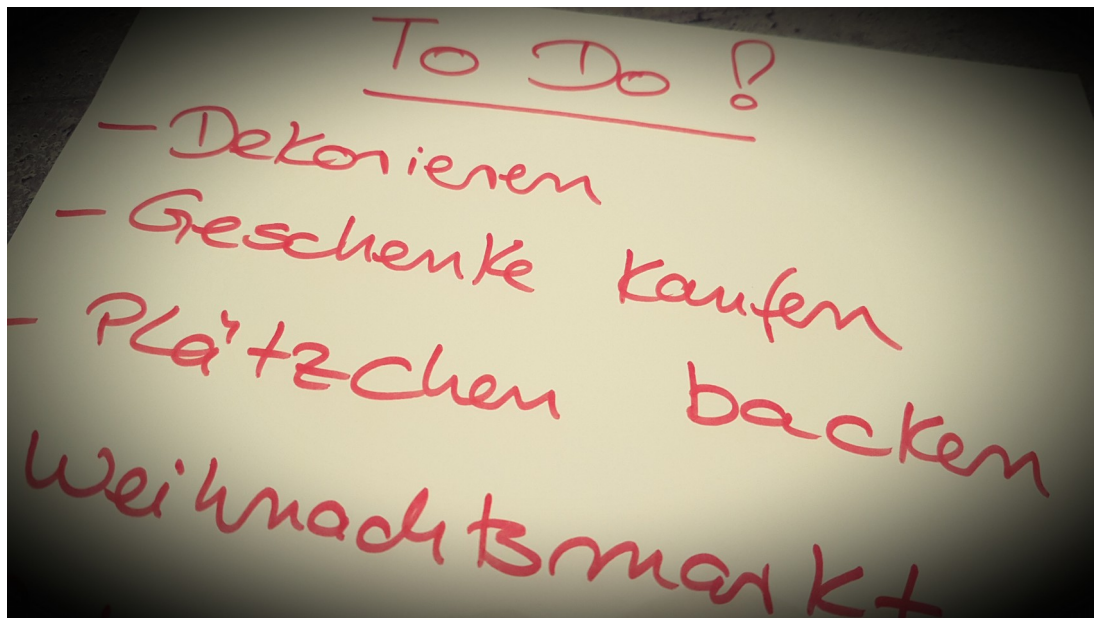 To Do!
- Dekorieren
- Geschenke kaufen
- Plätzchen backen
Weihnachtsmarkt